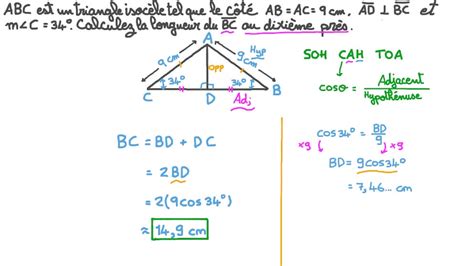 ABC est un triangle isocèle tel que le côté AB = AC = 9 cm, AD ⊥ BC et
m∠C = 34°. Calculez la longueur du BC au dixième près.
A
9 cm
Opp
Hyp
9 cm
34°
34°
C
D
B
Adj
SOH CAH TOA
cosθ = Adjacent / Hypothénuse
BC = BD + DC
= 2BD
= 2(9cos34°)
≈ 14,9 cm
cos34° = BD / 9
×9
×9
BD = 9cos34°
= 7,46... cm